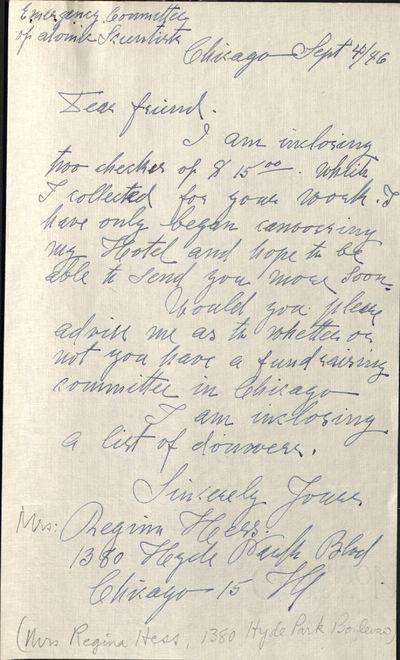 Emergency Committee
of atomic Scientists
Chicago Sept 4/46
Dear friend.
I am inclosing
two checkes of $ 15 00. which
I collected for your work. I
have only began canvocing
my Hotel and hope to be
able to send you more soon.
Would you please
advise me as to whether or
not you have a fundraising
committee in Chicago
I am inclosing
a list of donners.
Sincerely Yours
Mrs: Regina Hess
1380 Hyde Park Blvd
Chicago 15 Ill
(Mrs Regina Hess, 1380 Hyde Park Boulevard)